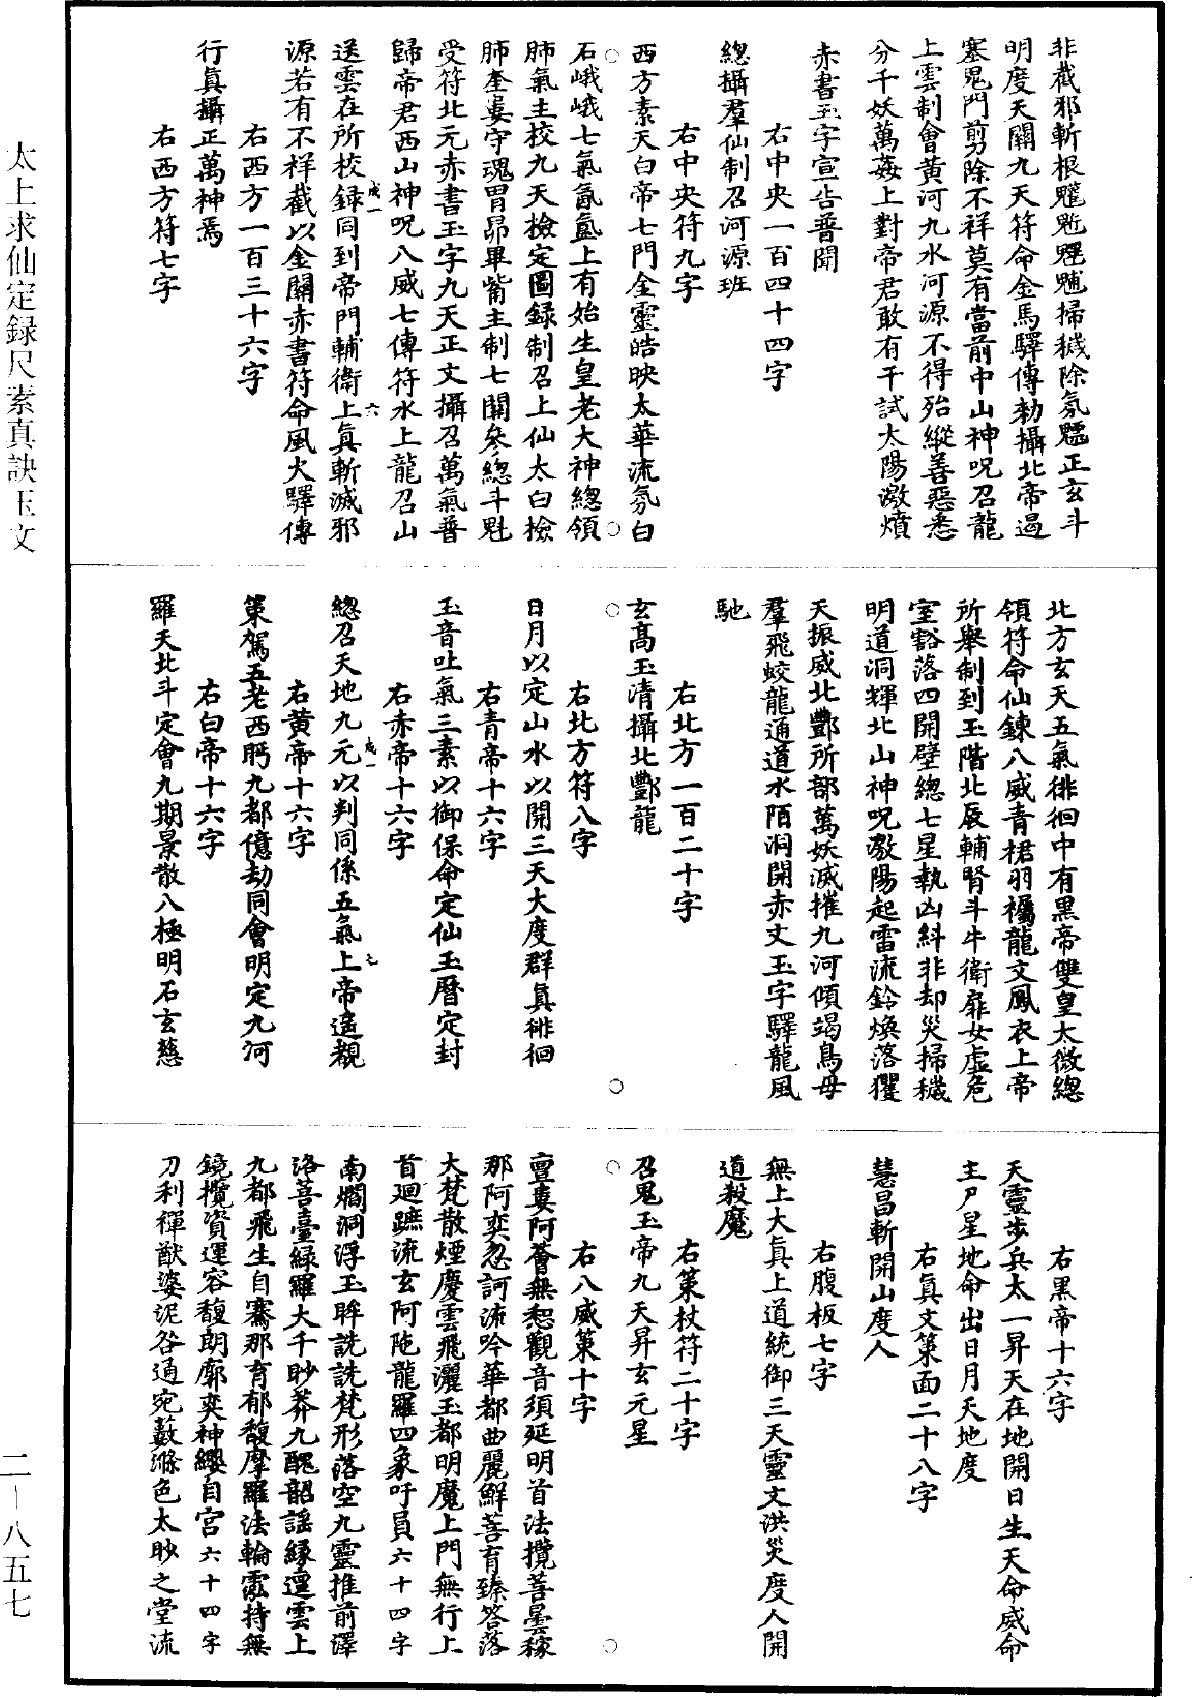 太上求仙定録尺素真訣玉文
二—八五七
非截邪斬根魓魀魒魖掃穢除氛魒正玄斗
明度天關九天符命金馬驛傳勑攝北帝遏
塞鬼門剪除不祥莫有當前中山神呪召龍
上雲制會黃河九水河源不得殆縱善惡悉
分千妖萬姦上對帝君敢有干試太陽激憤
赤書玉字宣告普聞
右中央一百四十四字
總攝羣仙制召河源班
右中央符九字
西方素天白帝七門金靈皓映太華流氛白
石峨峨七氣氤氳上有始生皇老大神總領
肺氣主校九天檢定圖録制召上仙太白檢
肺奎婁守魂胃昴畢觜主制七關參總斗魁
受符北元赤書玉字九天正文攝召萬氣普
歸帝君西山神呪八威七傳符水上龍召山
送雲在所校録同到帝門輔衛上真斬滅邪
成一 六
源若有不祥截以金關赤書符命風火驛傳
右西方一百三十六字
行真攝正萬神焉
右西方符七字
北方玄天五氣徘徊中有黑帝雙皇太微總
領符命仙鍊八威青裙羽襡龍文鳳衣上帝
所舉制到玉階北辰輔腎斗牛衛扉女虛危
室豁落四開壁總七星執凶糾非却災掃穢
明道洞輝北山神呪激陽起雷流鈴煥落玃
天振威北酆所部萬妖滅摧九河傾竭鳥母
羣飛蛟龍通道水陌洞開赤文玉字驛龍風
馳
右北方一百二十字
玄高玉清攝北酆龍
右北方符八字
日月以定山水以開三天大度群真徘徊
右青帝十六字
玉音吐氣三素以御保命定仙玉曆定封
右赤帝十六字
總召天地九元以判同係五氣上帝遥觀
成一 七
右黃帝十六字
策駕五老西眄九都億劫同會明定九河
右白帝十六字
羅天北斗定會九期景散八極明石玄慈
右黑帝十六字
天靈步兵太一昇天在地開日生天命威命
主尸星地命出日月天地度
右真文策面二十八字
慧昌斬開山度人
右腹板七字
無上大真上道統御三天靈文洪災度人開
道殺魔
右策杖符二十字
召鬼玉帝九天昇玄元星
右八威策十字
亶婁阿薈無惒觀音須延明首法攬菩曇稼
那阿奕忽訶流吟華都曲麗鮮菩育臻答落
大梵散煙慶雲飛灑玉都明魔上門無行上
首廻蹠流玄阿陁龍羅四象吁員六十四字
南爓洞浮玉眸詵詵梵形落空九靈推前澤
洛菩臺緑羅大千眇莽九醜韶謡緣邅雲上
九都飛生自騫那育郁馥摩羅法輪霐持無
鏡攬資運容馥朗廓奕神纓自宮六十四字
刀利禪猷婆泥咎通宛藪滌色太眇之堂流